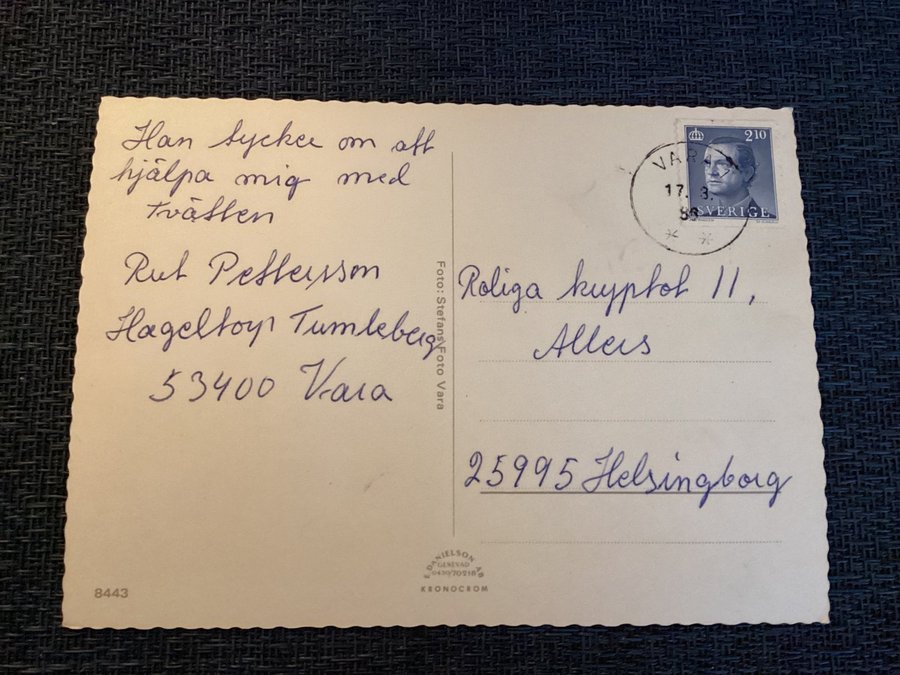 Han tycker om att
hjälpa mig med
tvätten
Rut Pettersson
Hageltorp Tumleberg
53400 Vara
8443
Foto: Stefans Foto Vara
E. DANIELSON AB
GENEVAD
0430/70218
KRONOCROM
2.10
SVERIGE
VARA
17. 3.
86
Roliga kryptot 11,
Allers
25995 Helsingborg